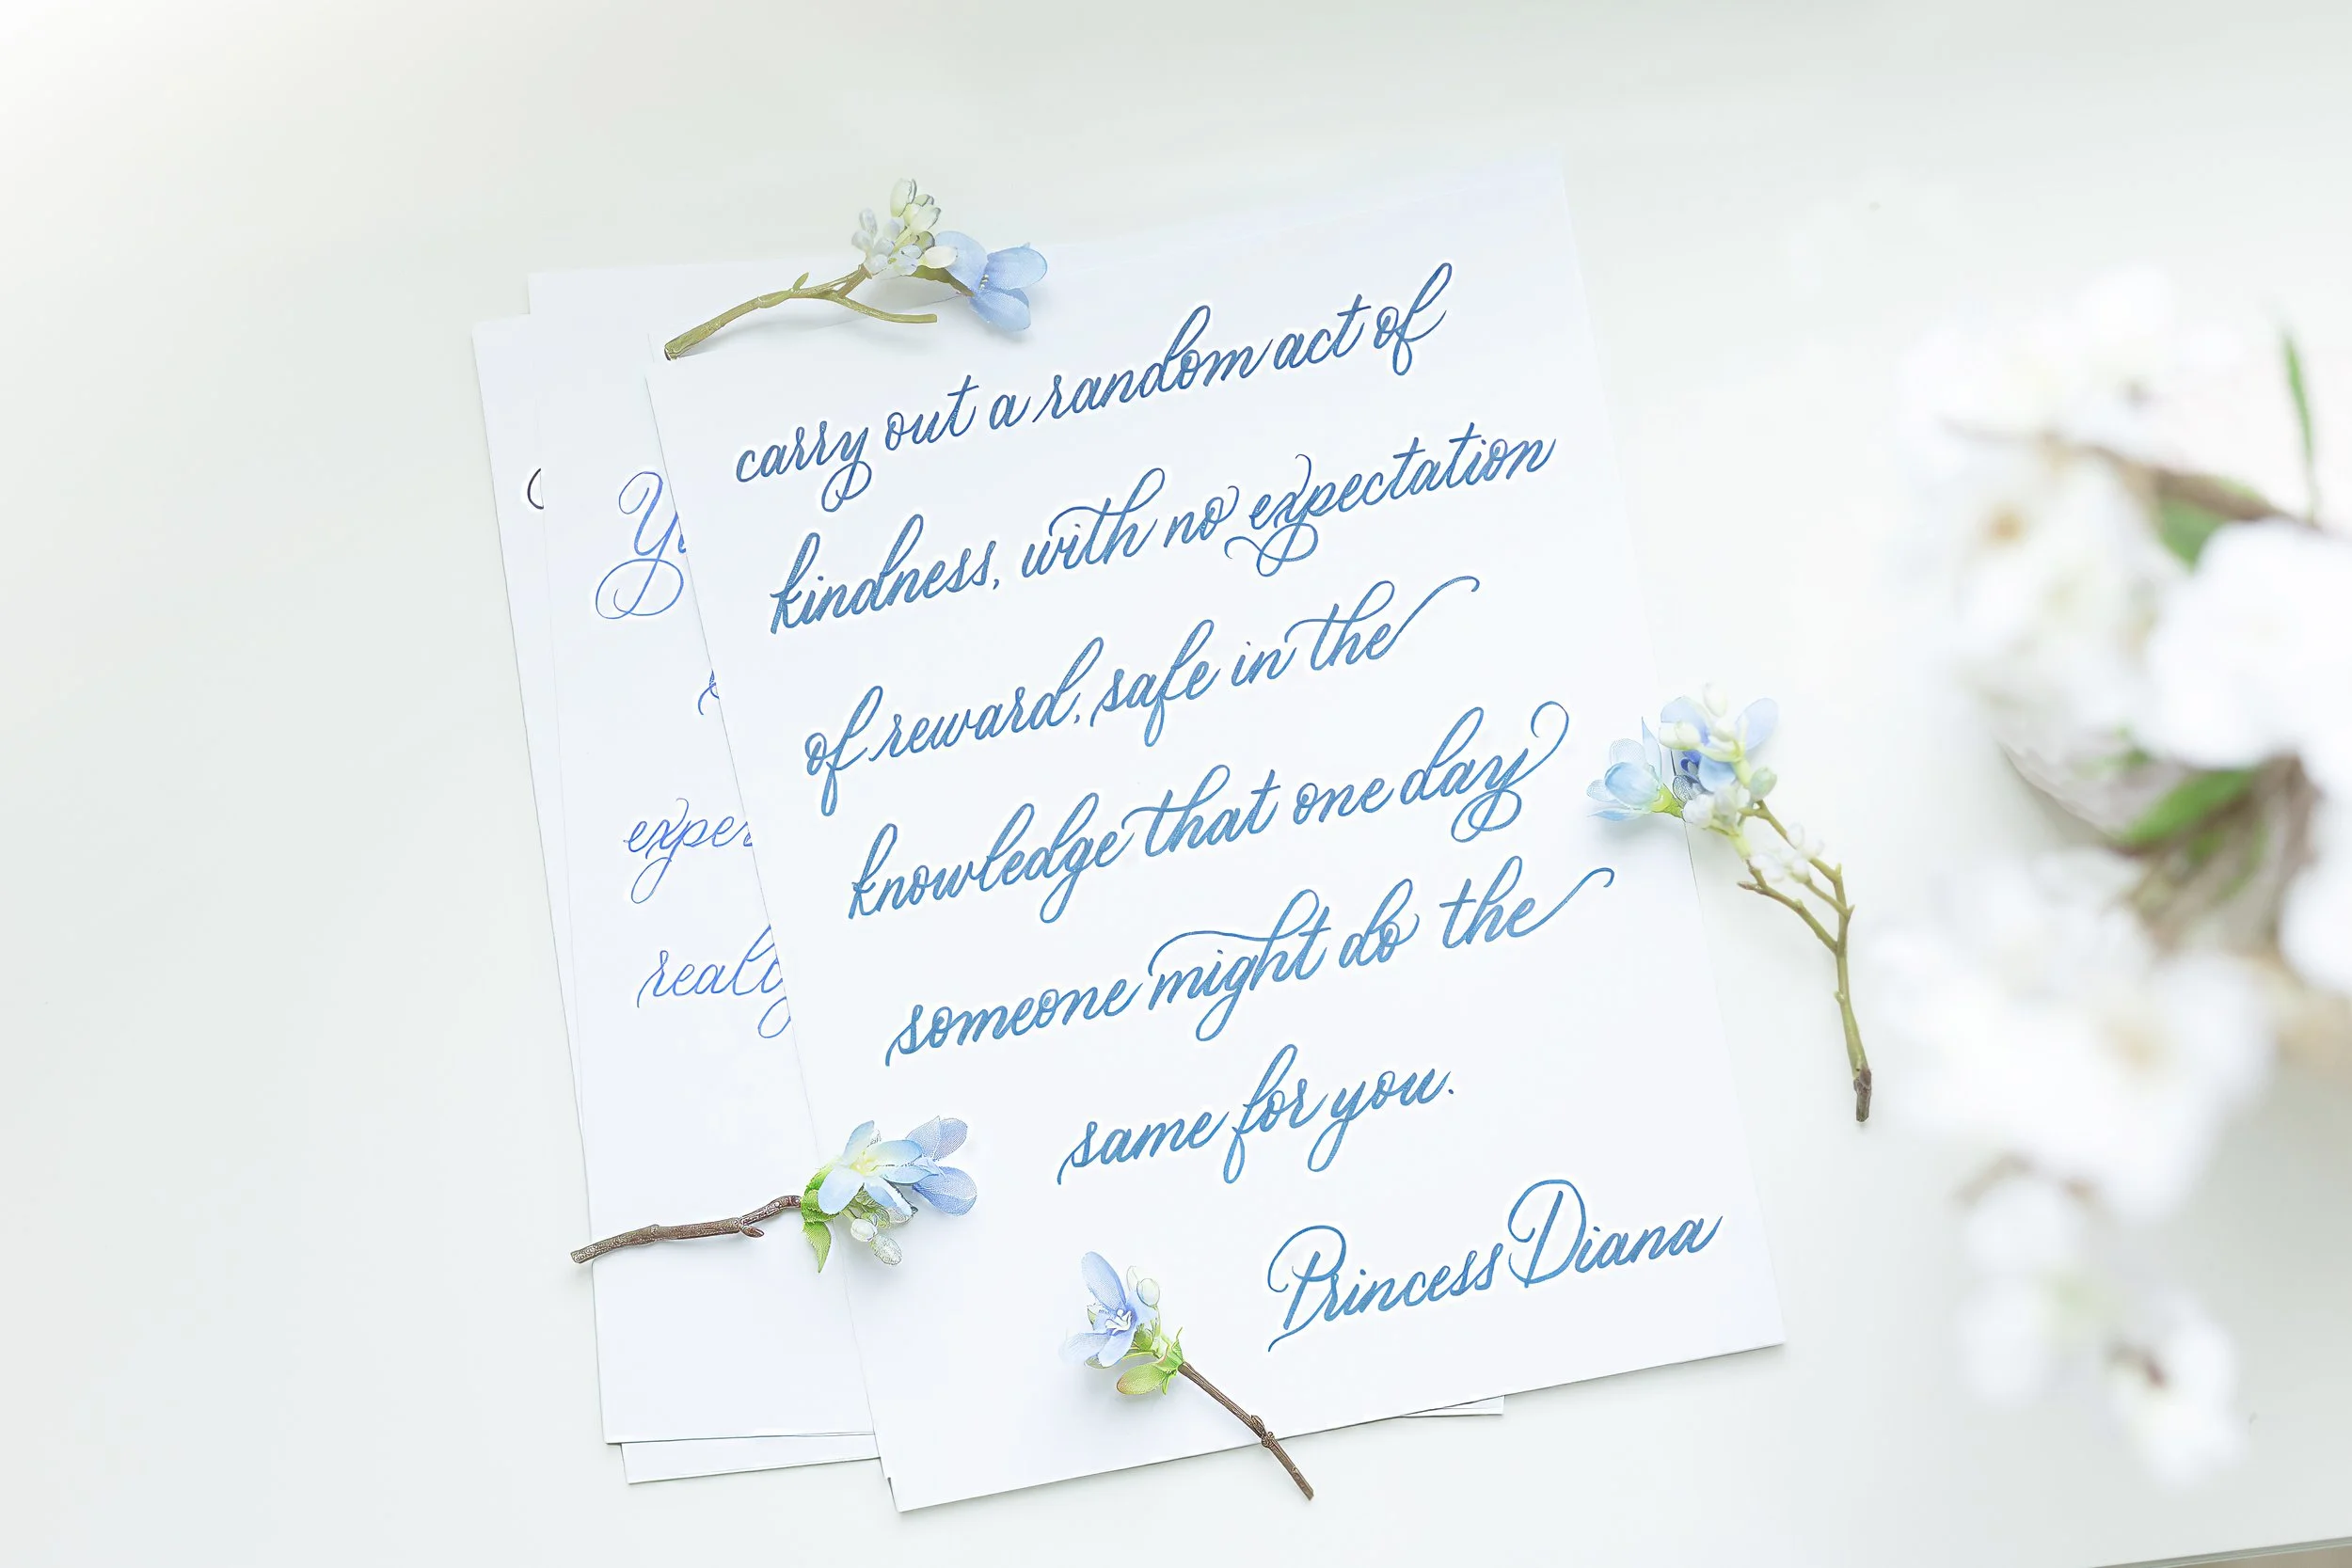 carry out a random act of
kindness, with no expectation
of reward, safe in the
knowledge that one day
someone might do the
same for you.
Princess Diana